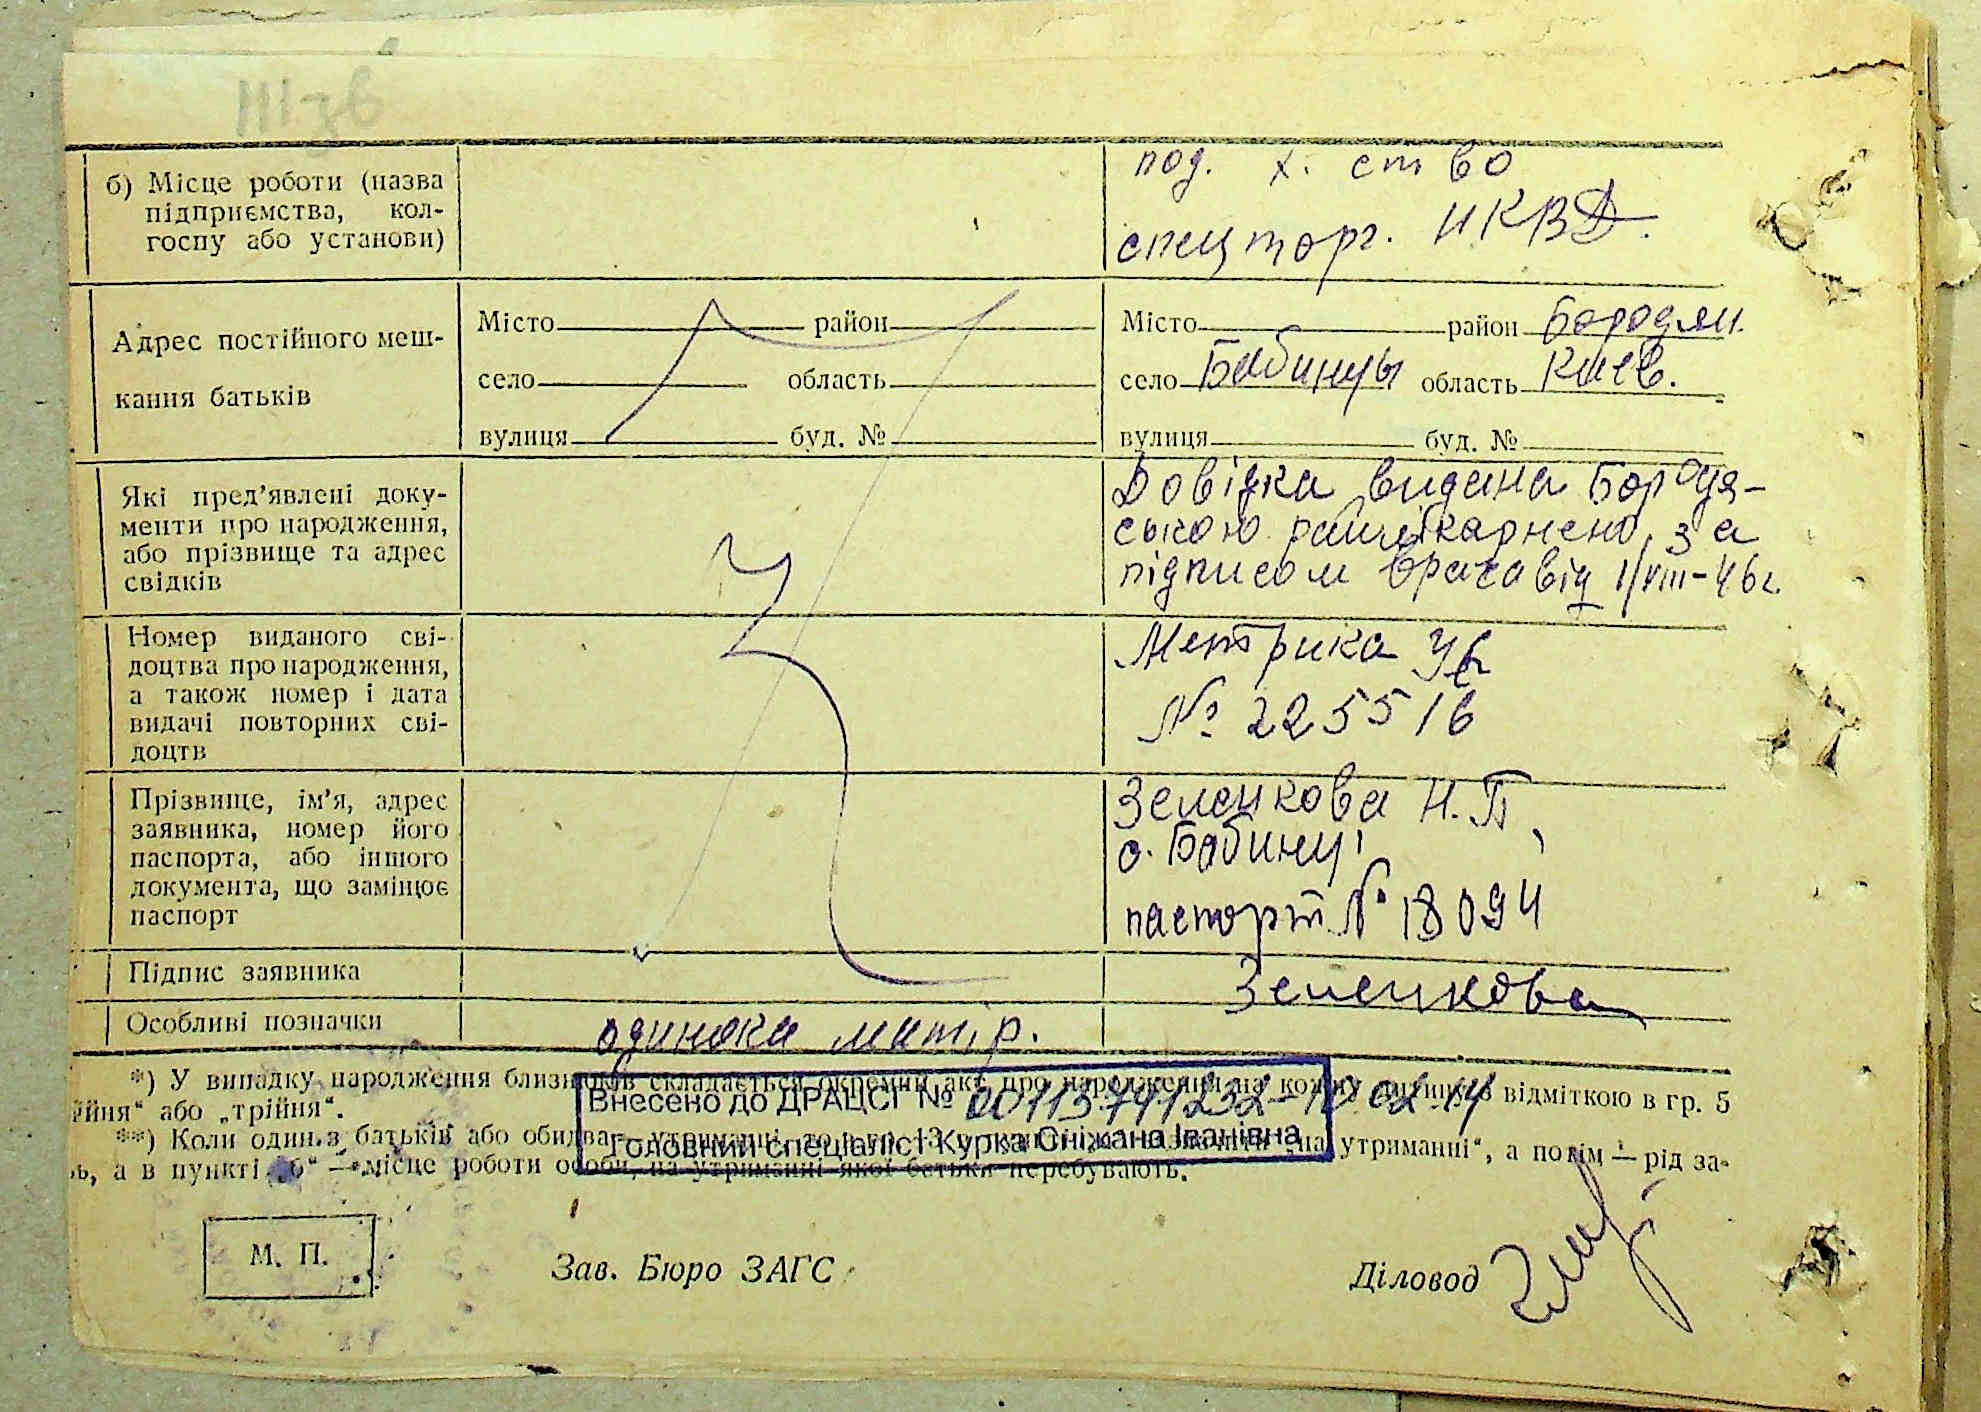 б) Місце роботи (назва
підприємства, кол-
госпу або установи)
под. х. ство
спецторг. НКВД.
Адрес постійного меш-
кання батьків
Місто район
село область
вулиця буд. №
Місто район Бородян.
село Бабинцы область Киев.
вулиця буд. №
Які пред'явлені доку-
менти про народження,
або прізвище та адрес
свідків
Довідка видана Бородя-
ською райлікарнею за
підписом врача від 1/VIII-46г.
Номер виданого сві-
доцтва про народження,
а також номер і дата
видачі повторних сві-
доцтв
Метрика
№ 225516
Прізвище, ім'я, адрес
заявника, номер його
паспорта, або іншого
документа, що замінює
паспорт
Зеленкова Н.П,
с. Бабинці
паспорт № 18094
Підпис заявника
Зеленкова
Особливі позначки
одинока матір.
*) У випадку народження близнюків складається окремий акт про народження на кожну дитину з відміткою в гр. 5
ійня" або „трійня".
Внесено до ДРАЦСГ № 00113741232
**) Коли один з батьків або обидва утриманні, то в гр. 13 „на утриманні", а потім — рід за-
Головний спеціаліст Курка Сніжана Іванівна
ь, а в пункті „б" — місце роботи особи, на утриманні якої батьки перебувають.
М. П.
Зав. Бюро ЗАГС
Діловод